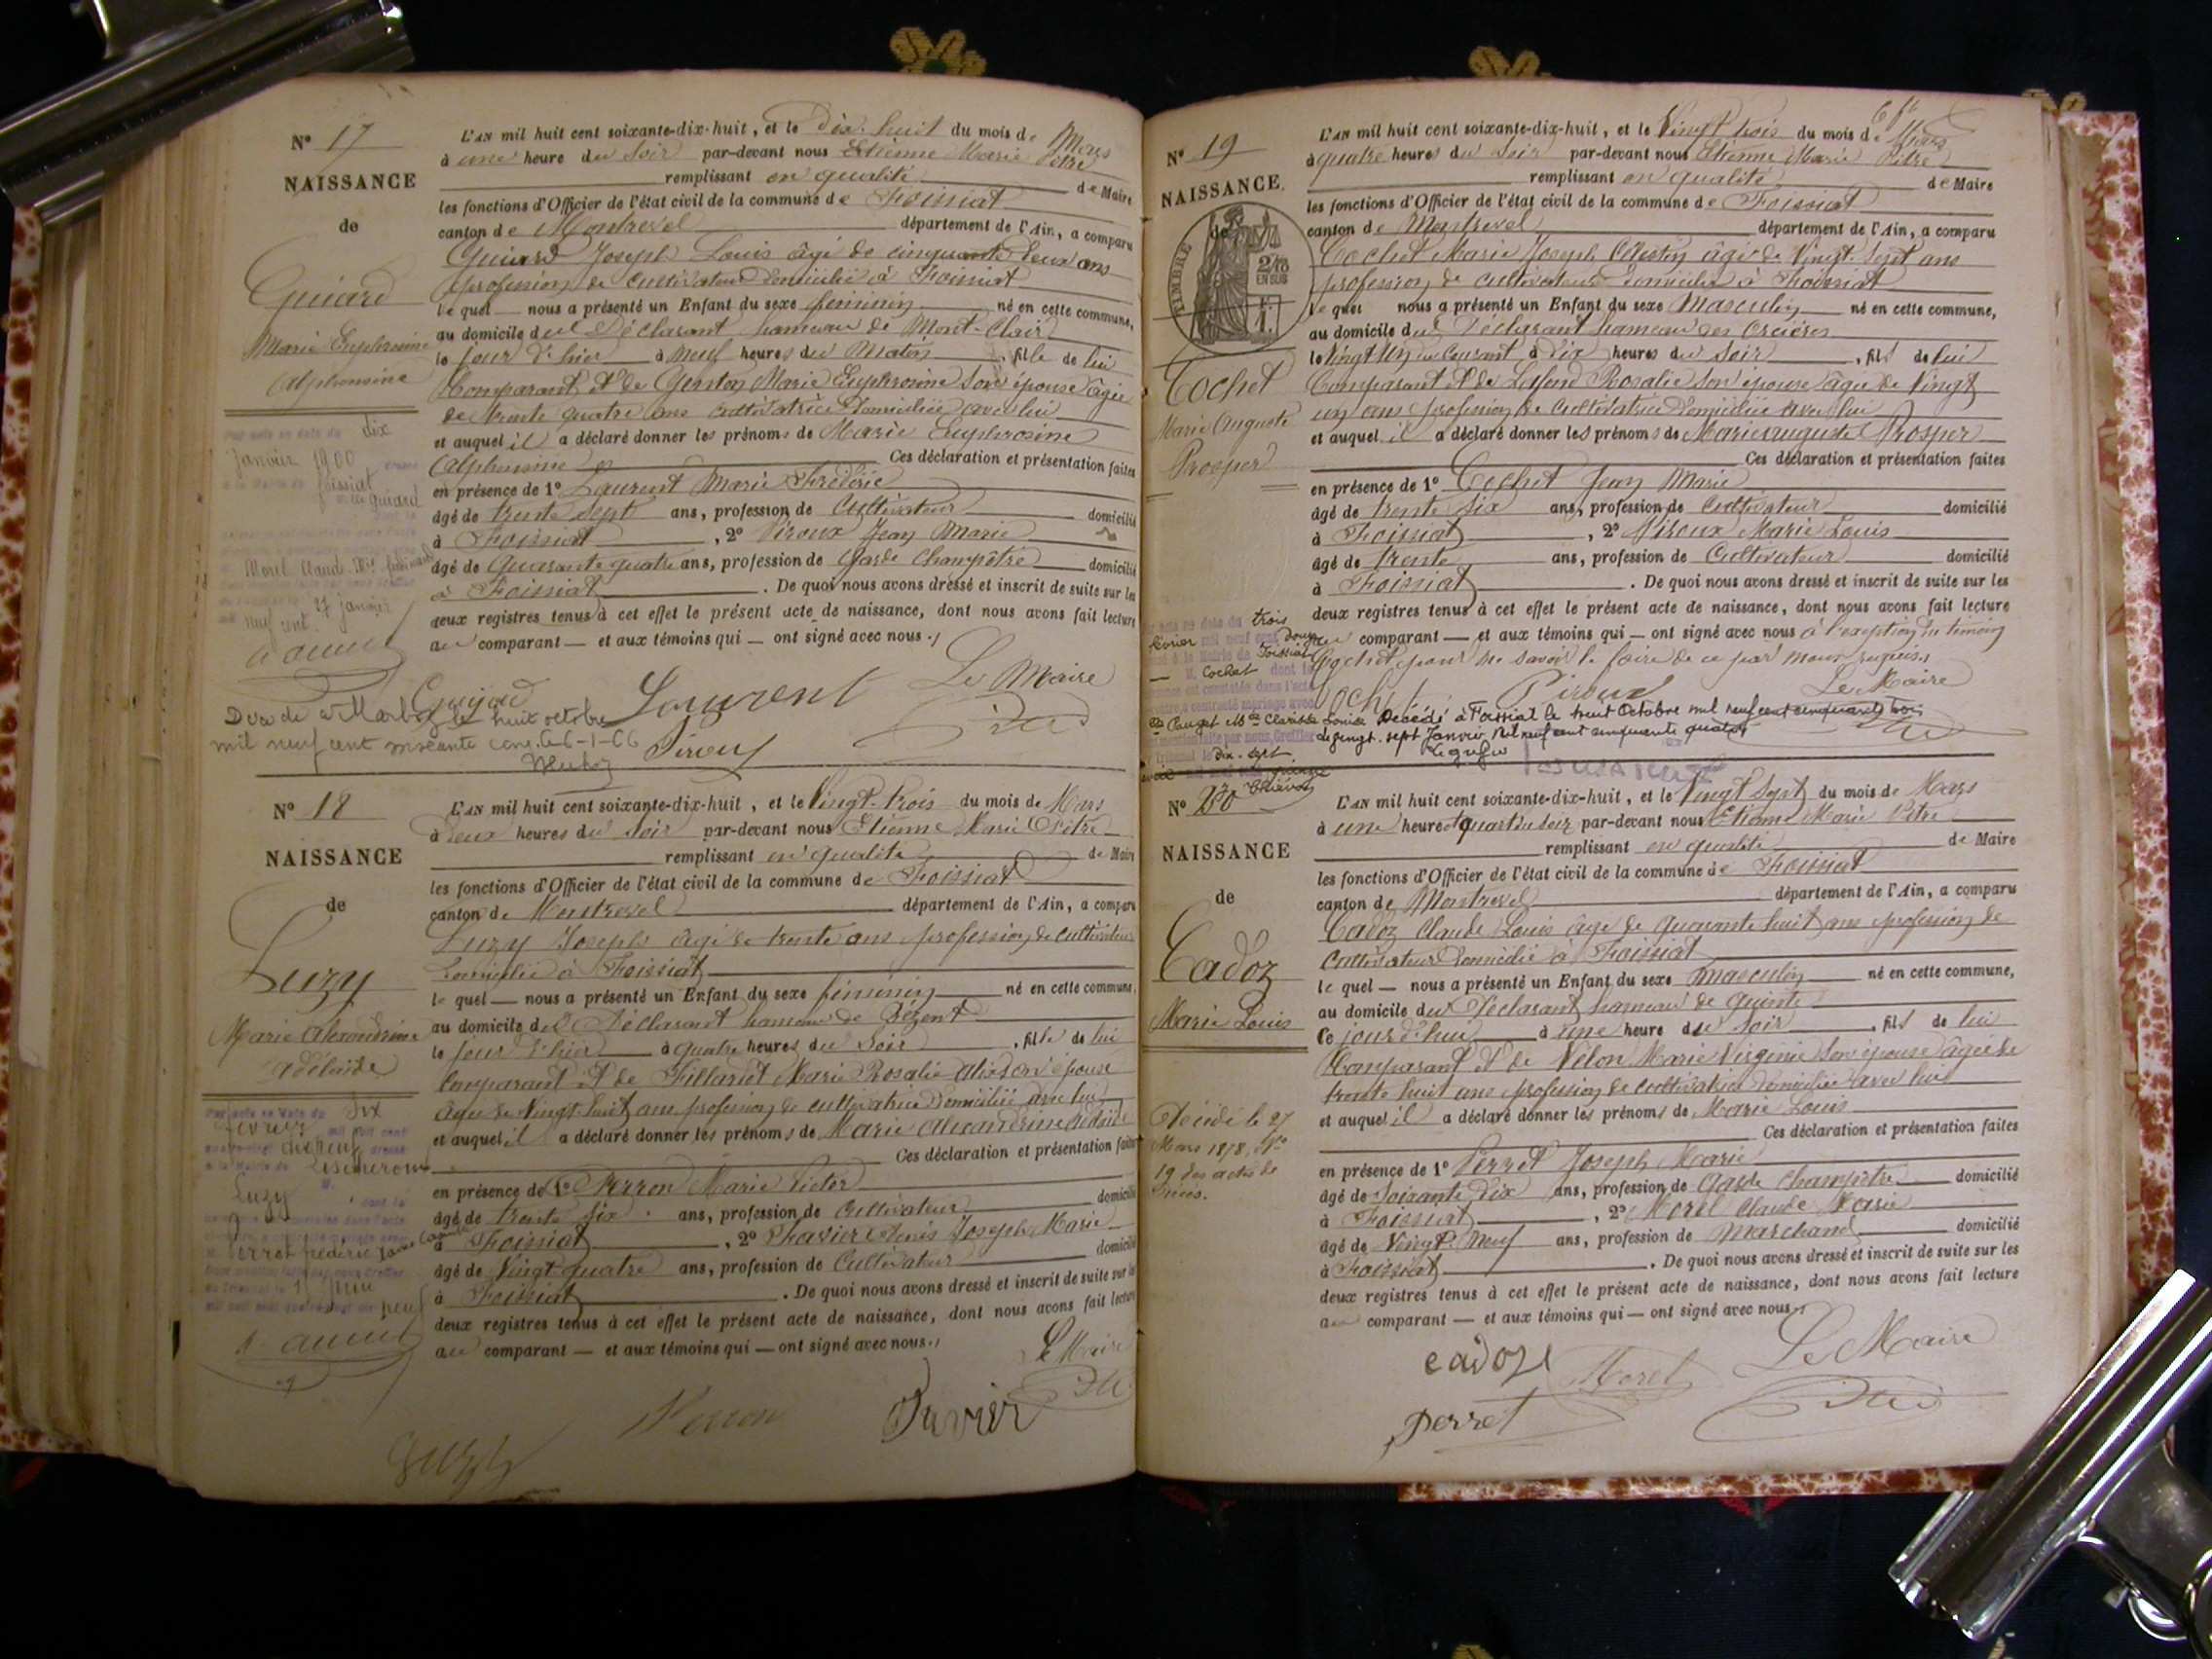 N° 17
NAISSANCE
de
Guiard
Marie Euphrosine
Alphonsine
L'AN mil huit cent soixante-dix-huit, et le Dix-huit du mois de Mars
à une heure du soir par-devant nous Etienne Marie Pitre
remplissant en qualité de Maire
les fonctions d'Officier de l'état civil de la commune de Foissiat
canton de Montrevel département de l'Ain, a comparu
Guiard Joseph Louis âgé de cinquante deux ans
profession de cultivateur domicilié à Foissiat
le quel nous a présenté un Enfant du sexe féminin né en cette commune,
au domicile du Déclarant hameau de Mont-Clair
le jour d'hier à neuf heures du matin, fille de lui
Comparant et de Marie Euphrosine son épouse âgée
de trente quatre ans cultivatrice domiciliée avec lui
et auquel il a déclaré donner les prénoms de Marie Euphrosine
Alphonsine Ces déclaration et présentation faites
en présence de 1° Laurent Marie Frédéric
âgé de trente sept ans, profession de Cultivateur domicilié
à Foissiat, 2° Piroux Jean Marie
âgé de Quarante quatre ans, profession de Garde Champêtre domicilié
à Foissiat. De quoi nous avons dressé et inscrit de suite sur les
deux registres tenus à cet effet le présent acte de naissance, dont nous avons fait lecture
au comparant — et aux témoins qui — ont signé avec nous.
dix
Janvier 1900
Foissiat
Guiard
Morel Claud
27 janvier
neuf cent
Guiard Laurent Le Maire
Piroux Pitre
Décédée à Marboz le huit octobre
mil neuf cent soixante cinq. 6-1-66
N° 18
NAISSANCE
de
Luzy
Marie Alexandrine
Adélaïde
L'AN mil huit cent soixante-dix-huit, et le Vingt-trois du mois de Mars
à deux heures du soir par-devant nous Etienne Marie Pitre
remplissant en qualité de Maire
les fonctions d'Officier de l'état civil de la commune de Foissiat
canton de Montrevel département de l'Ain, a comparu
Luzy Joseph âgé de trente ans profession de cultivateur
domicilié à Foissiat
le quel — nous a présenté un Enfant du sexe féminin né en cette commune,
au domicile du Déclarant hameau de
le jour d'hier à quatre heures du soir, fille de lui
comparant et de Marie Rosalie son épouse
âgée de Vingt-huit ans profession de cultivatrice domiciliée avec lui
et auquel il a déclaré donner les prénoms de Marie Alexandrine Adélaïde
Ces déclaration et présentation faites
en présence de 1° Perron Marie Victor
âgé de trente six ans, profession de Cultivateur domicilié
à Foissiat, 2° Favier Denis Joseph Marie
âgé de Vingt-quatre ans, profession de Cultivateur domicilié
à Foissiat. De quoi nous avons dressé et inscrit de suite sur les
deux registres tenus à cet effet le présent acte de naissance, dont nous avons fait lecture
au comparant — et aux témoins qui — ont signé avec nous.
Février
Lescheroux
Luzy
Perret frédéric
Le Maire
Luzy Perron Favier Pitre
N° 19
NAISSANCE
de
TIMBRE
2/10
EN SUS
Cochet
Marie Auguste
Prosper
L'AN mil huit cent soixante-dix-huit, et le Vingt trois du mois de Mars
à quatre heures du soir par-devant nous Etienne Marie Pitre
remplissant en qualité de Maire
les fonctions d'Officier de l'état civil de la commune de Foissiat
canton de Montrevel département de l'Ain, a comparu
Cochet Marie Joseph âgé de Vingt-Sept ans
profession de cultivateur domicilié à Foissiat
le quel nous a présenté un Enfant du sexe Masculin né en cette commune,
au domicile du Déclarant hameau des Orcières
le Vingt un du Courant à dix heures du soir, fils de lui
Comparant et de Lafond Rosalie son épouse âgée de Vingt
un ans profession de cultivatrice domiciliée avec lui
et auquel il a déclaré donner les prénoms de Marie Auguste Prosper
Ces déclaration et présentation faites
en présence de 1° Cochet Jean Marie
âgé de trente six ans, profession de Cultivateur domicilié
à Foissiat, 2° Piroux Marie Louis
âgé de trente ans, profession de Cultivateur domicilié
à Foissiat. De quoi nous avons dressé et inscrit de suite sur les
deux registres tenus à cet effet le présent acte de naissance, dont nous avons fait lecture
au comparant — et aux témoins qui — ont signé avec nous à l'exception du témoin
Cochet pour ne savoir le faire de ce par nous requis.
trois
février mil neuf cent douze
à la Mairie de Foissiat
Cochet dont la
a contracté mariage avec
Clarisse Louise
Dix-sept
Cochet Piroux Le Maire
Pitre
Décédé à Foissiat le trent Octobre mil neuf cent cinquante trois
le vingt-sept Janvier mil neuf cent cinquante quatre
N° 20
NAISSANCE
de
Cadoz
Marie Louis
L'AN mil huit cent soixante-dix-huit, et le Vingt Sept du mois de Mars
à une heure et quart du soir par-devant nous Etienne Marie Pitre
remplissant en qualité de Maire
les fonctions d'Officier de l'état civil de la commune de Foissiat
canton de Montrevel département de l'Ain, a comparu
Cadoz Claude Louis âgé de quarante huit ans profession de
cultivateur domicilié à Foissiat
le quel — nous a présenté un Enfant du sexe masculin né en cette commune,
au domicile du Déclarant hameau de
Ce jourd'hui à une heure du soir, fils de lui
Comparant et de Velon Marie Virginie son épouse âgée de
trente huit ans profession de cultivatrice domiciliée avec lui
et auquel il a déclaré donner les prénoms de Marie Louis
Ces déclaration et présentation faites
en présence de 1° Perret Joseph Marie
âgé de soixante dix ans, profession de Garde Champêtre domicilié
à Foissiat, 2° Morel Claude Marie
âgé de Vingt-Neuf ans, profession de Marchand domicilié
à Foissiat. De quoi nous avons dressé et inscrit de suite sur les
deux registres tenus à cet effet le présent acte de naissance, dont nous avons fait lecture
au comparant — et aux témoins qui — ont signé avec nous.
Décédé le 27
Mars 1878, N°
19 des actes de
Décès.
cadoz Morel Le Maire
Perret Pitre